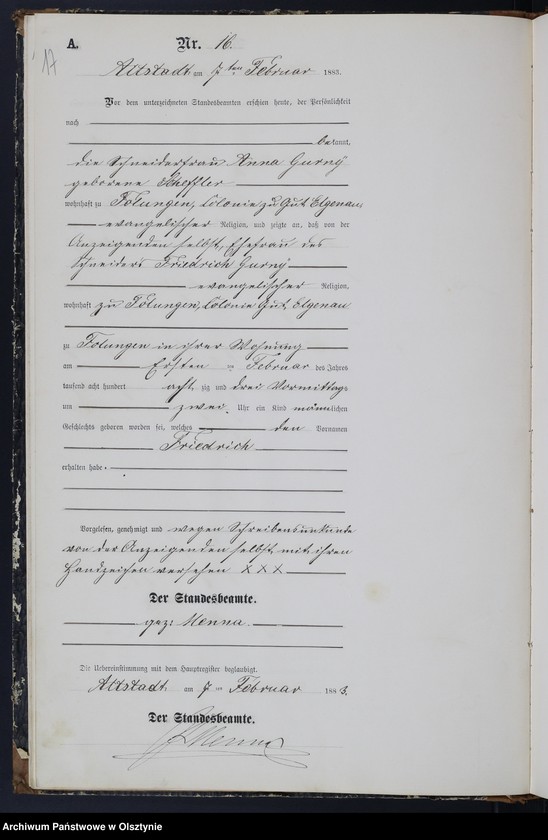 17
A.
Nr. 16.
Altstadt am 7ten Februar 1883.
Vor dem unterzeichneten Standesbeamten erschien heute, der Persönlichkeit
nach
bekannt,
die Schneiderfrau Anna Gurny
geborene Scheffler
wohnhaft zu Folungen, Colonie zu Gut Elgenau
evangelischer Religion, und zeigte an, daß von der
Anzeigenden selbst, Ehefrau des
Schneiders Friedrich Gurny
evangelischer Religion,
wohnhaft zu Folungen, Colonie Gut Elgenau
zu Folungen in ihrer Wohnung
am Ersten Februar des Jahres
tausend acht hundert acht zig und drei Vormittags
um zwei Uhr ein Kind männlichen
Geschlechts geboren worden sei, welches den Vornamen
Friedrich
erhalten habe.
Vorgelesen, genehmigt und wegen Schreibensunkunde
von der Anzeigenden selbst mit ihren
Handzeichen versehen XXX
Der Standesbeamte.
gez: Menna.
Die Uebereinstimmung mit dem Hauptregister beglaubigt.
Altstadt am 7ten Februar 1883.
Der Standesbeamte.
Menna
Archiwum Państwowe w Olsztynie